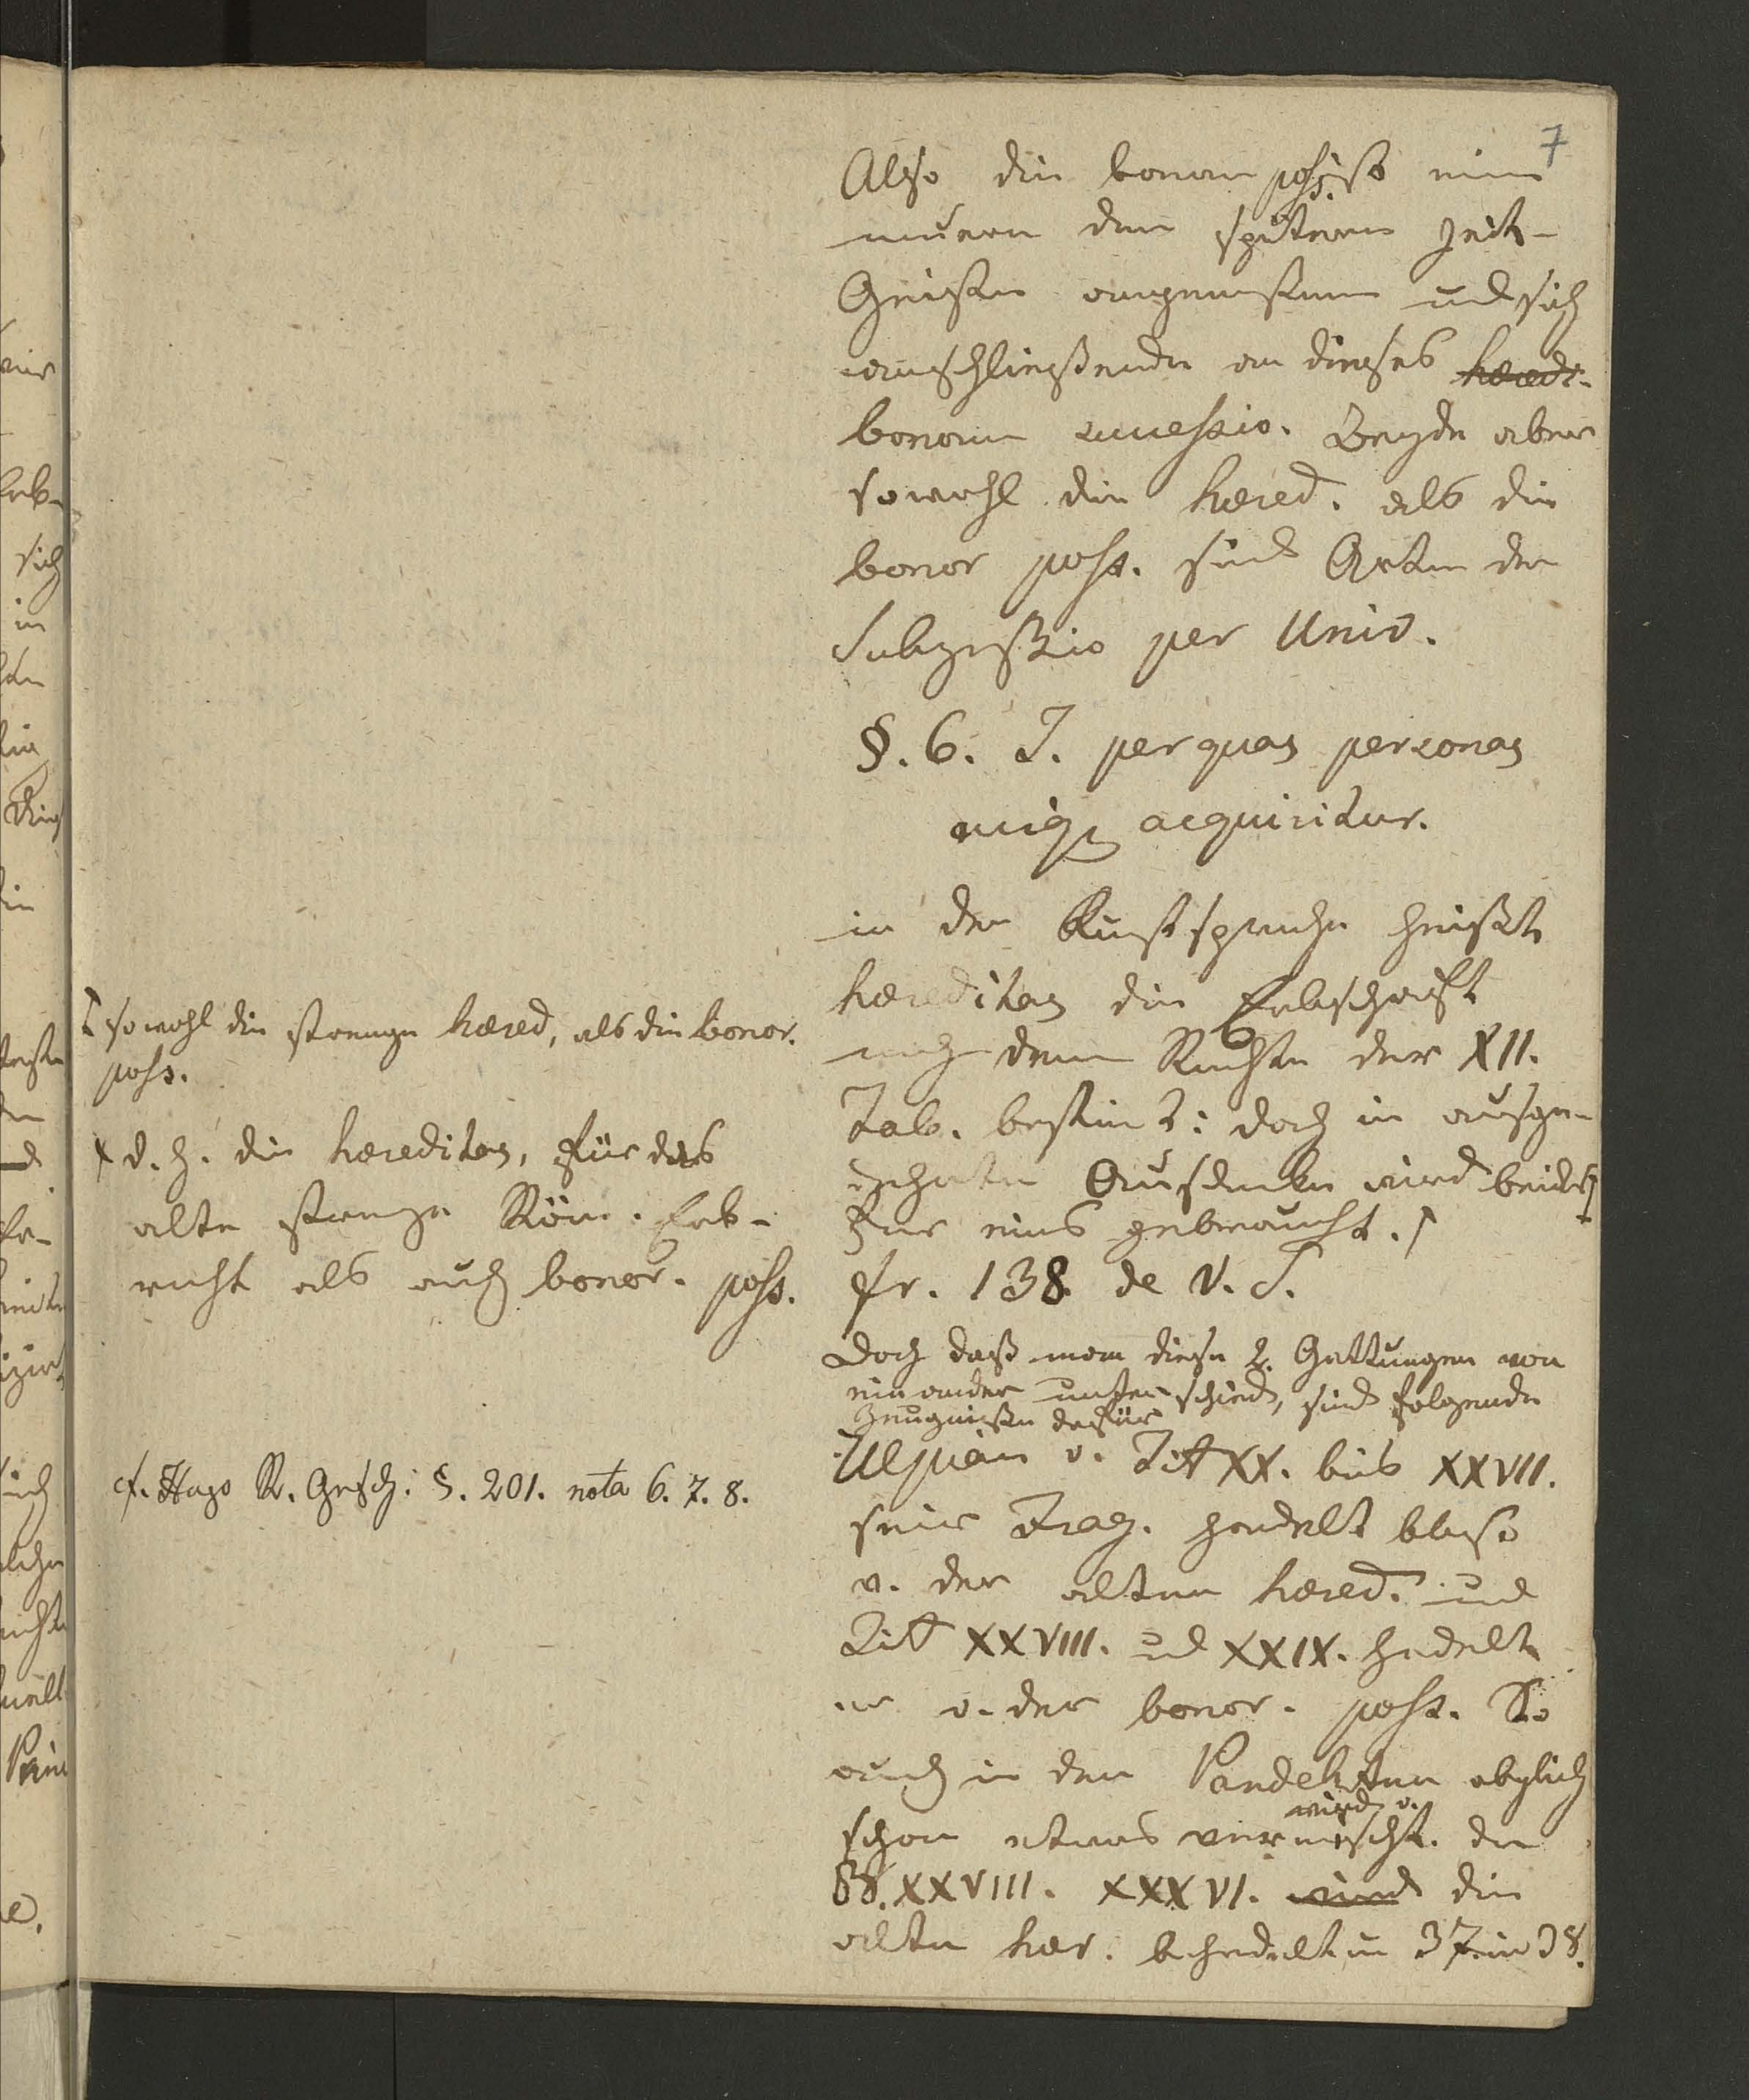 7
Also die bonorum poss. ist eine
neuere den späteren Zeit-
Geisten angemessene und sich
anschließende an dieses hæredi-
bonorum successio. Beyde aber
sowohl die hæred. als die
bonor poss. sind Arten der
Sukzessio per Univ.
§. 6. J. per quas personas
cuiq; acquiritur.
in der Kunstsprache heißt
hæreditas die Erbschaft
nach dem Rechte der XII.
Tab. bestimt: doch in ausge-
dehnter Ausdruke wird beides
für eins gebraucht.
fr. 138 de V. S.
Doch daß man diese 2. Gattungen von
einander unterschied, sind folgende
Zeugnißen dafür
Ulpian v. Tit XX. bis XXVII.
seir Frag. handelt bloso
v. der alten hæred. und
Tit XXVIII. und XXIX. handelt
er v. der bonor. poss. So
auch in den Pandekten obglich
schon etwas vermischt. der
wird v.
BB. XXVIII. XXXVI. wird die
alte hær. behandelt in 37. in 38.
sowohl die strenge hæred, als die bonor.
poss.
d. h. die hæreditas, für das
alte strenge Röm. Erb-
recht als auch bonor. poss.
cf. Hugo R. Gesch: §. 201. nota 6. 7. 8.